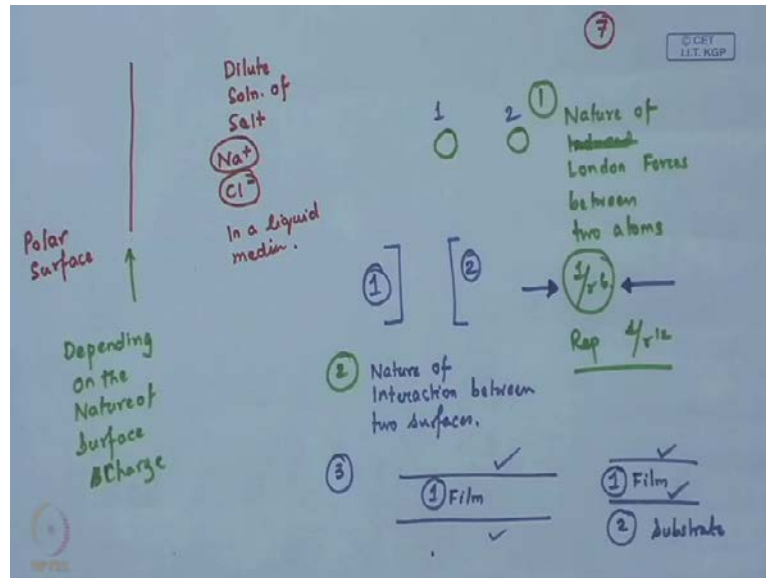 7
© CET
I.I.T. KGP
Dilute
Soln. of
Salt
Na+
Cl-
In a liquid
medin.
Polar
Surface
Depending
on the
Nature of
Surface
Charge
1 2
1 Nature of
London Forces
between
two atoms
1/r6
Rep 1/r12
1 2
2 Nature of
Interaction between
two surfaces.
3
1 Film
1 Film
2 Substrate